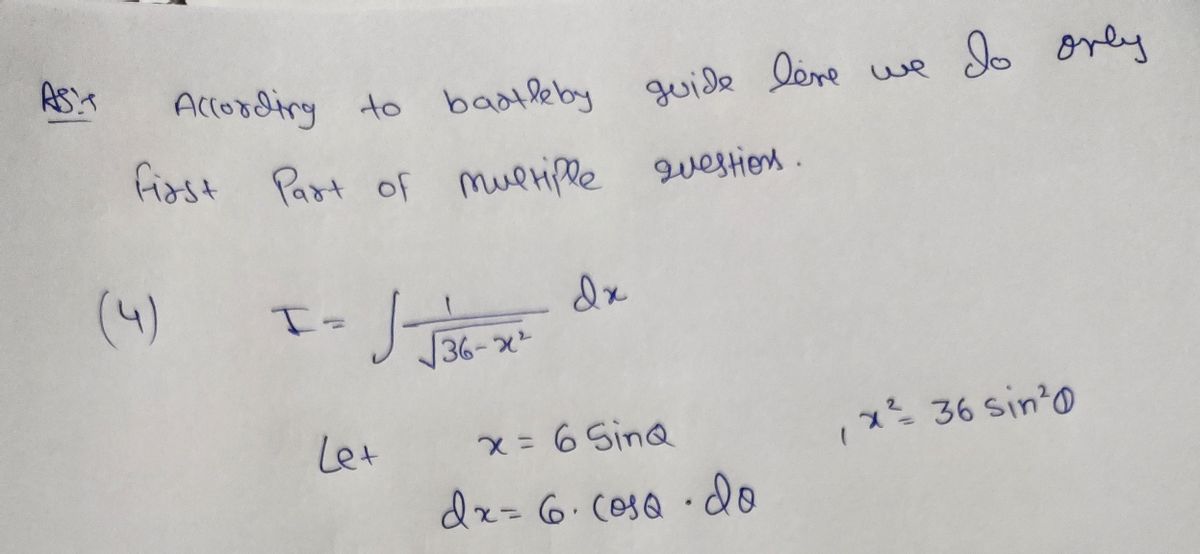 Ans:- According to bartleby guide line we do only
first Part of multiple questions.
(4) I = ∫ 1/√(36-x²) dx
Let x = 6 Sinθ , x² = 36 sin²θ
dx = 6. cosθ . dθ